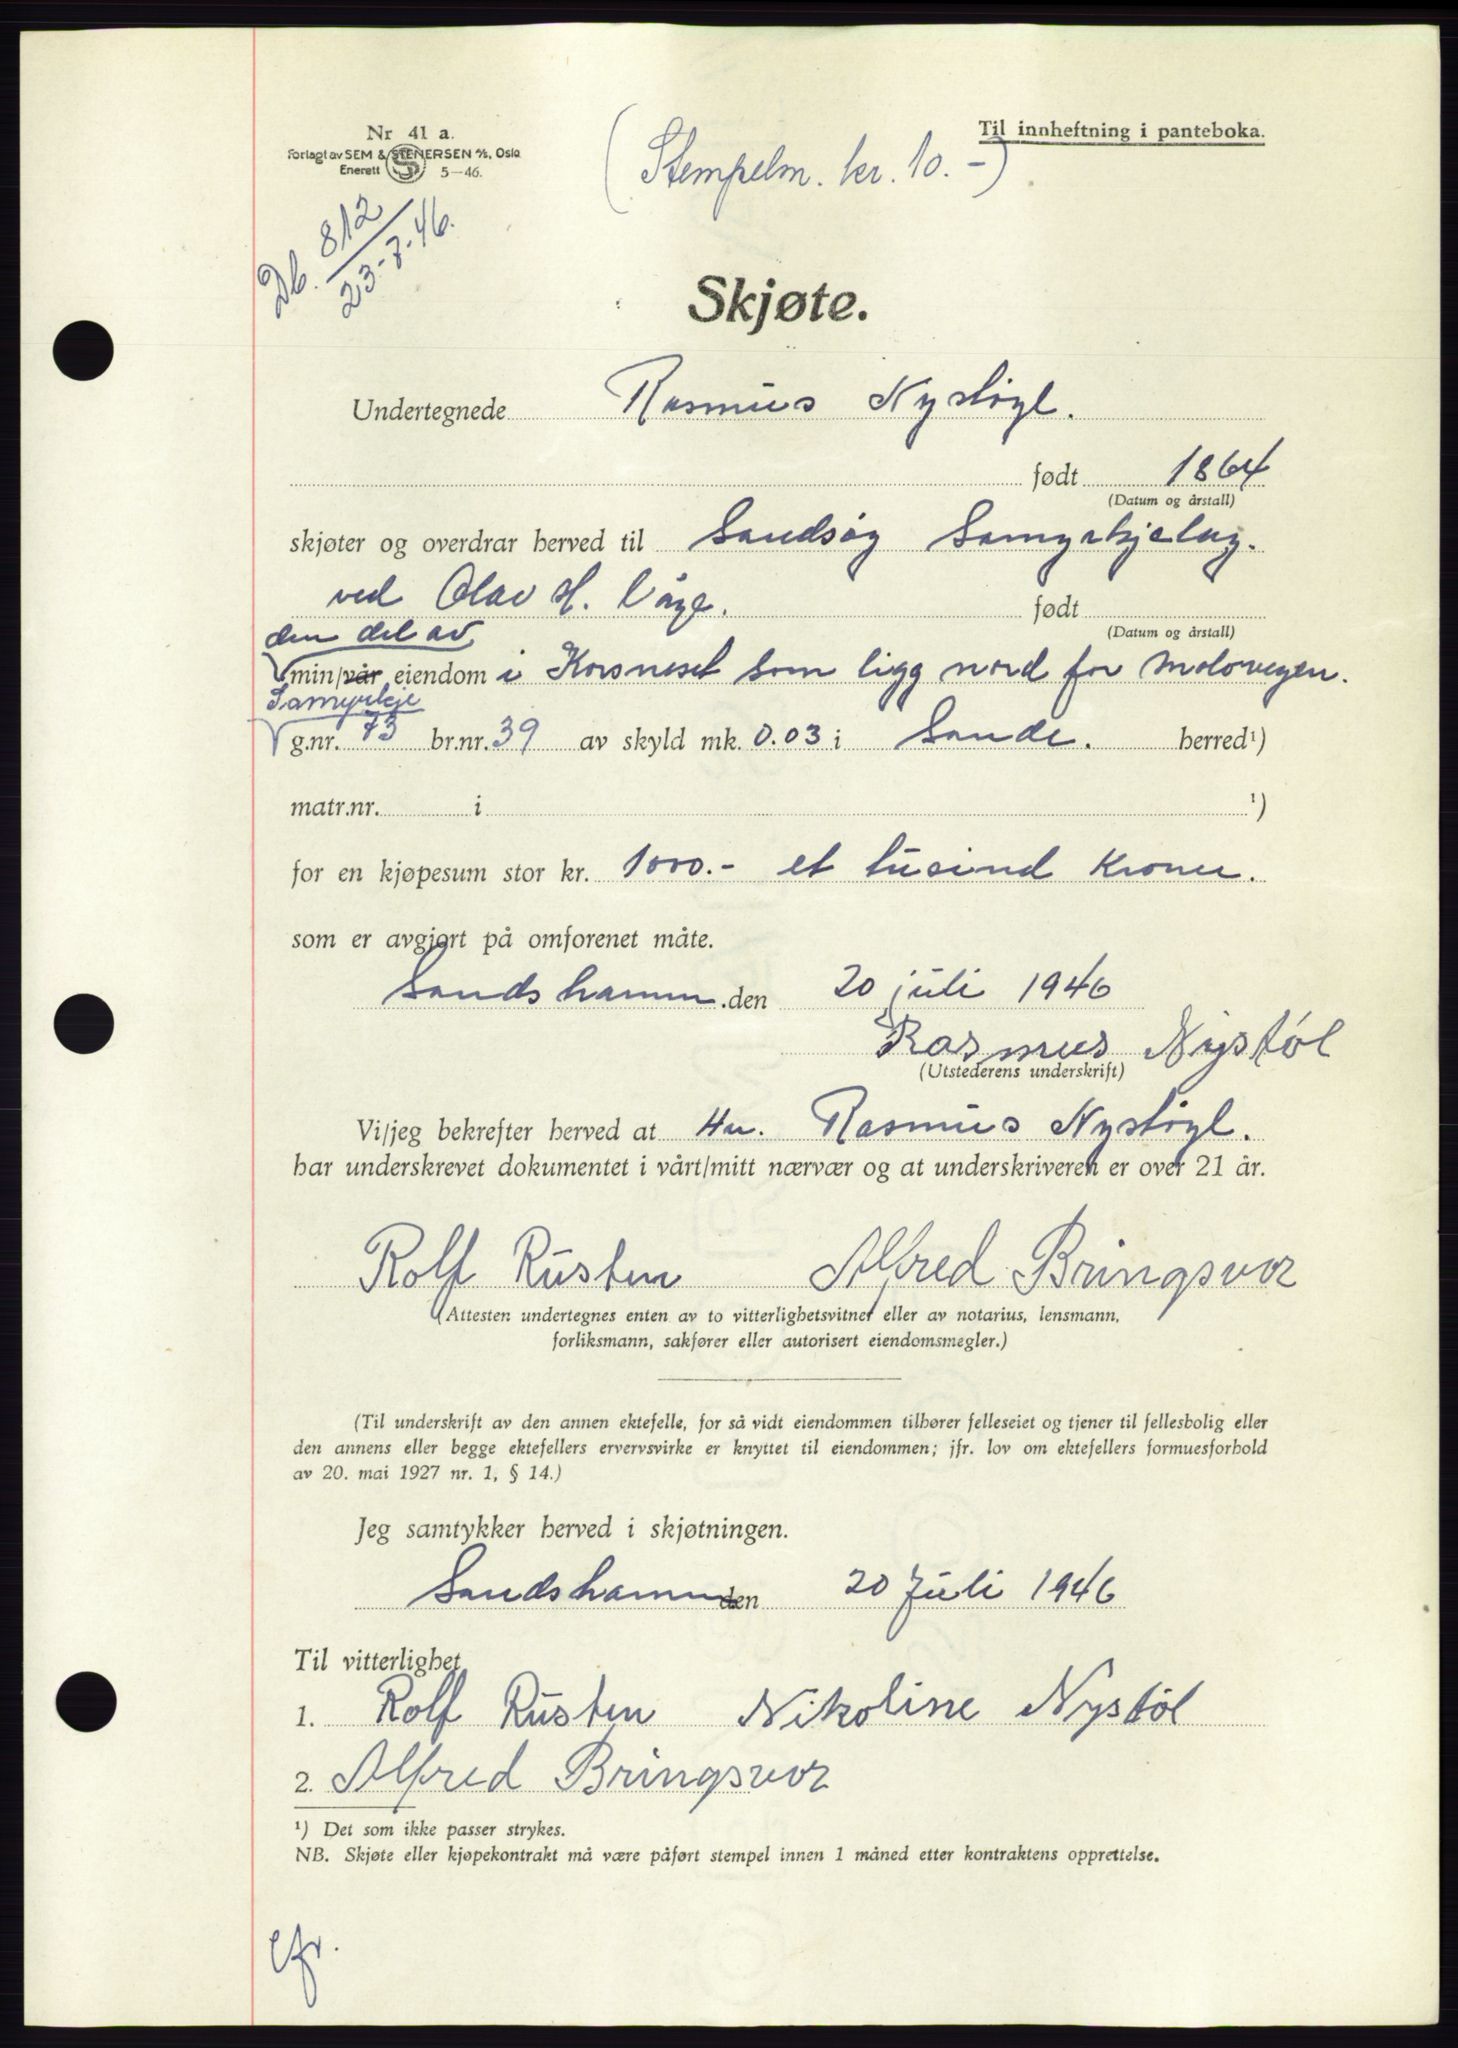 Nr 41 a.
Forlagt av SEM & STENERSEN A/S, Oslo
Enerett 5—46.
Til innheftning i panteboka.
(Stempelm. kr. 10.-)
Db. 812
23-7-46.
Skjøte.
Undertegnede Rasmus Nystøyl.
født 1864
(Datum og årstall)
skjøter og overdrar herved til Sandsøy Samyrkjelag.
ved Olav H. Våge. født
(Datum og årstall)
den del av
min/vår eiendom i Korsneset som ligg nord for molovegen.
Samyrkje
g.nr. 73 br.nr. 39 av skyld mk. 0.03 i Sande. herred¹)
matr.nr. i ¹)
for en kjøpesum stor kr. 1000.- et tusind kroner.
som er avgjort på omforenet måte.
Sandshamn. den 20 juli 1946
Rasmus Nystøl
(Utstederens underskrift)
Vi/jeg bekrefter herved at Hr. Rasmus Nystøyl.
har underskrevet dokumentet i vårt/mitt nærvær og at underskriveren er over 21 år.
Rolf Rusten Alfred Bringsvor
(Attesten undertegnes enten av to vitterlighetsvitner eller av notarius, lensmann,
forliksmann, sakfører eller autorisert eiendomsmegler.)
(Til underskrift av den annen ektefelle, for så vidt eiendommen tilhører felleseiet og tjener til fellesbolig eller
den annens eller begge ektefellers ervervsvirke er knyttet til eiendommen; jfr. lov om ektefellers formuesforhold
av 20. mai 1927 nr. 1, § 14.)
Jeg samtykker herved i skjøtningen.
Sandshamn den 20 Juli 1946
Til vitterlighet
1. Rolf Rusten Nikoline Nystøl
2. Alfred Bringsvor
¹) Det som ikke passer strykes.
NB. Skjøte eller kjøpekontrakt må være påført stempel innen 1 måned etter kontraktens opprettelse.